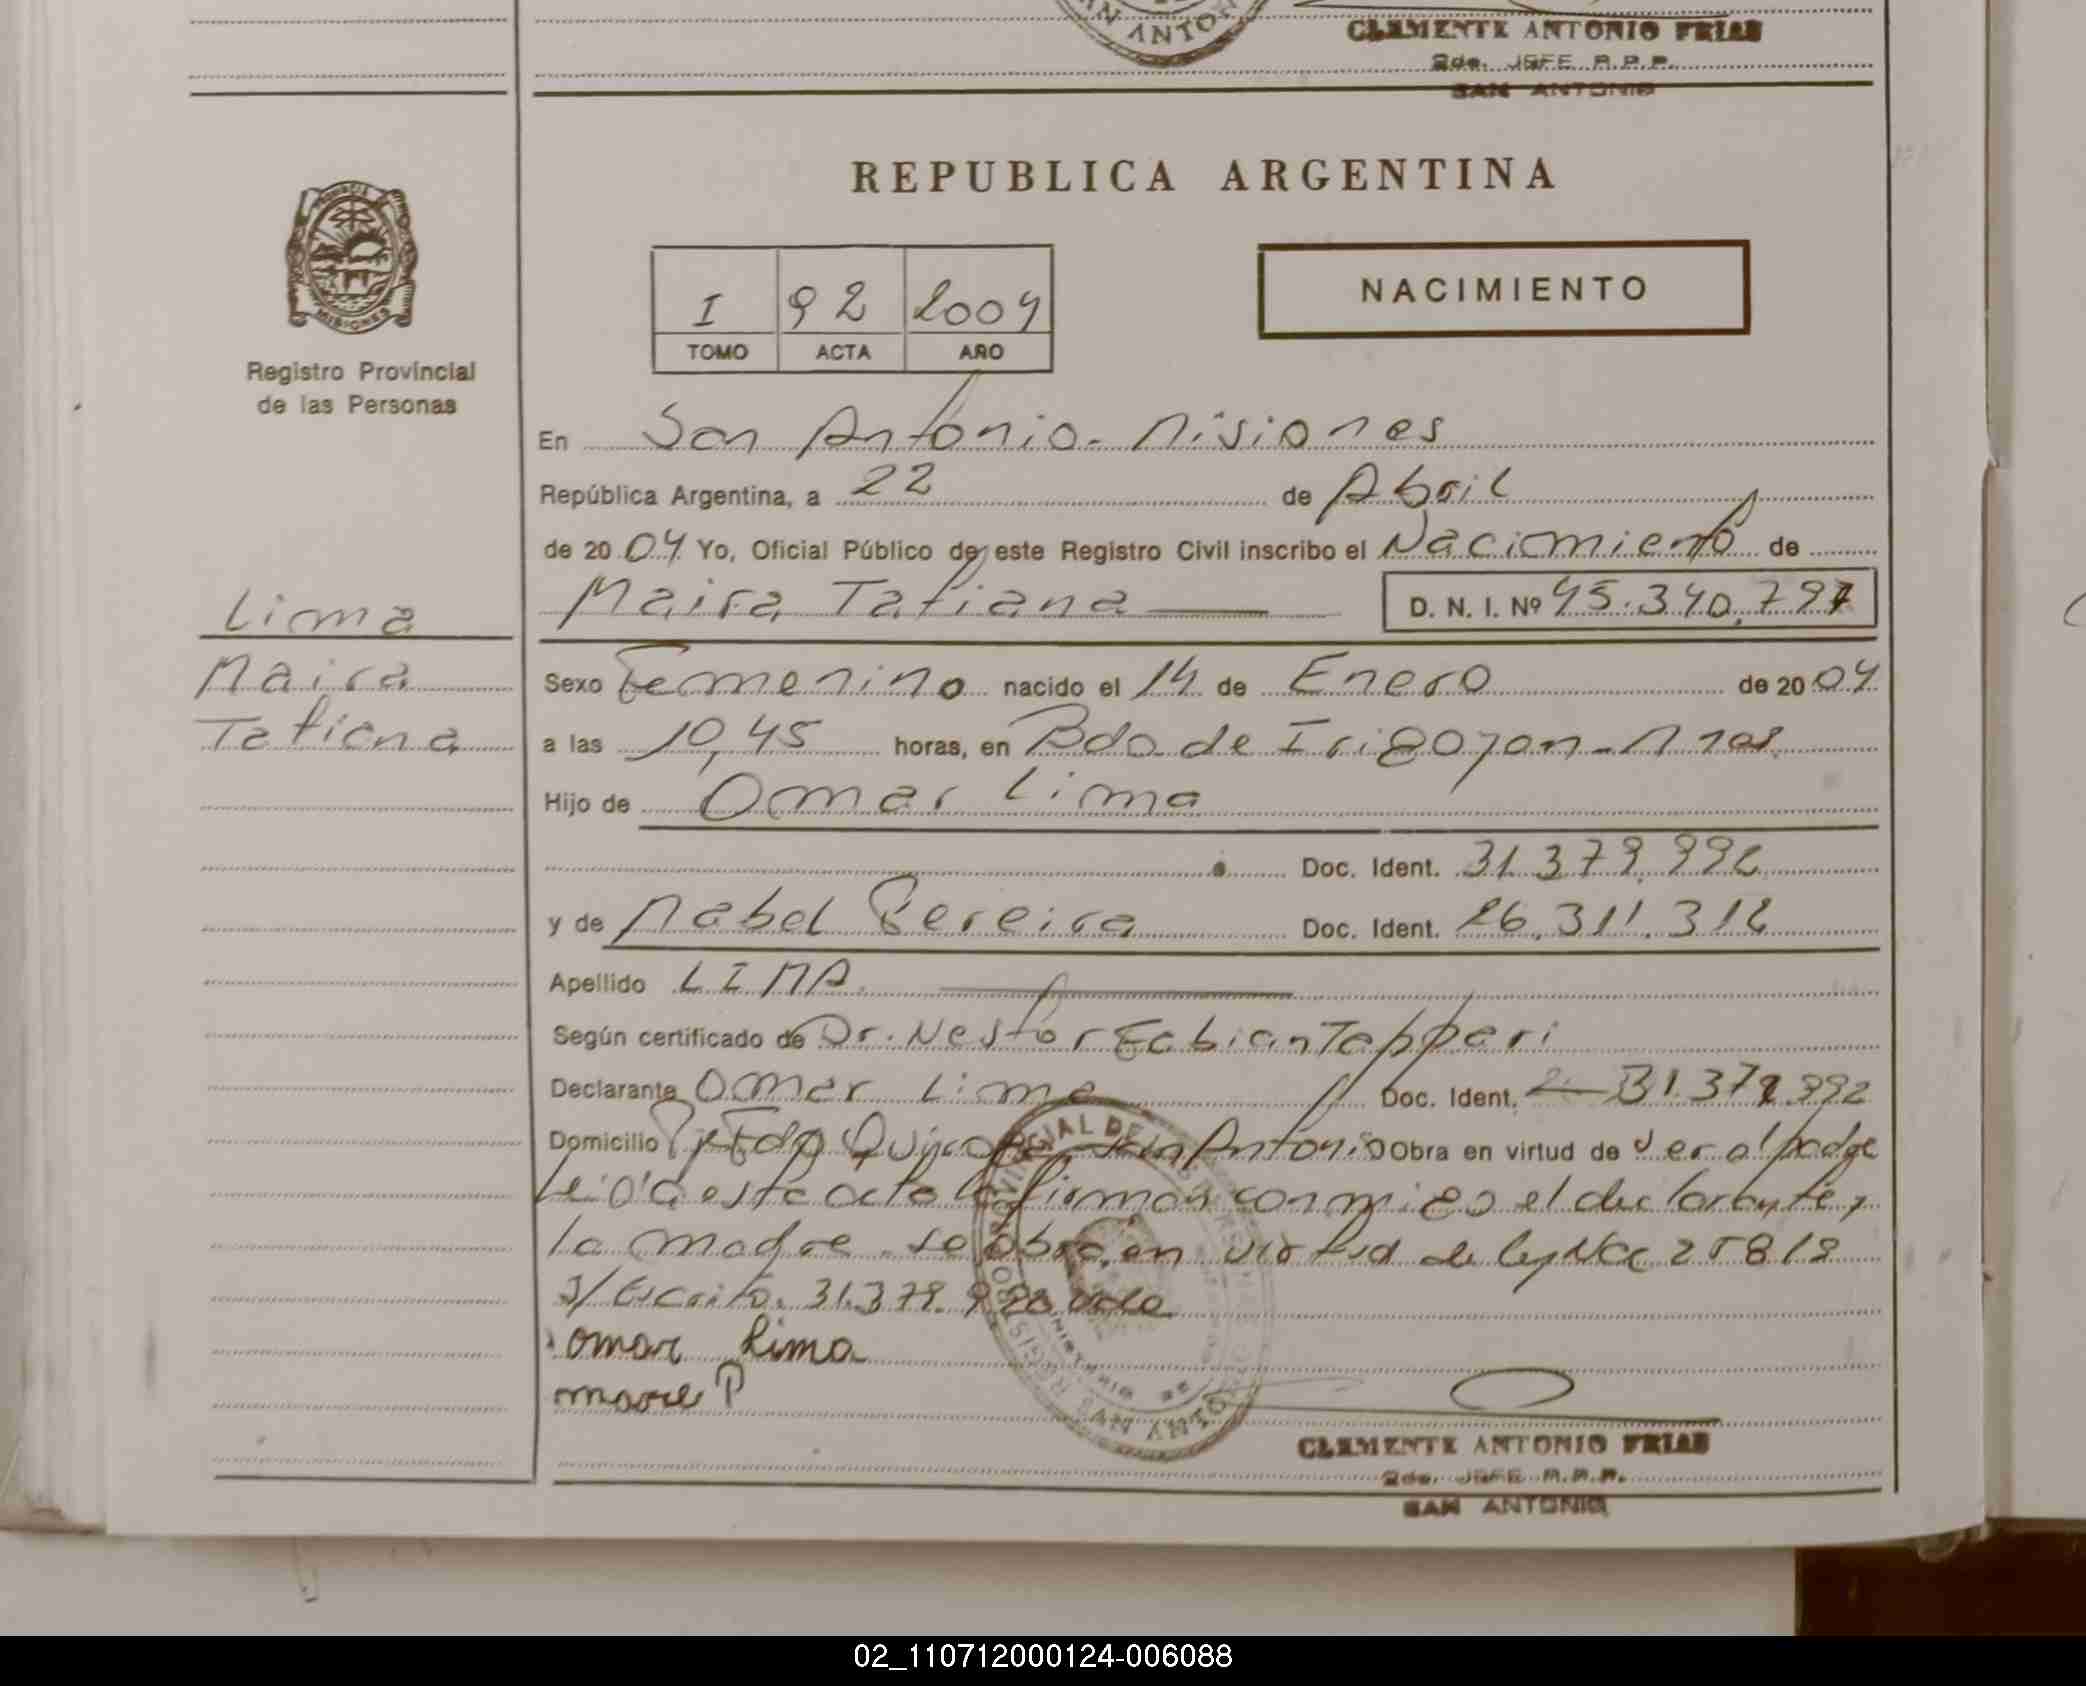 SAN ANTONIO
CLEMENTE ANTONIO FRIAS
2do. JEFE R.P.P.
SAN ANTONIO
REPUBLICA ARGENTINA
PROVINCIA
MISIONES
I 92 2004
TOMO ACTA AÑO
NACIMIENTO
Registro Provincial
de las Personas
En San Antonio - Misiones
República Argentina, a 22 de Abril
de 2004 Yo, Oficial Público de este Registro Civil inscribo el Nacimiento de
Maira Tatiana D. N. I. Nº 45.340.797
Lima
Maira
Tatiana
Sexo Femenino nacido el 14 de Enero de 2004
a las 10,45 horas, en Bdo de Irigoyen - Mnes
Hijo de Omar Lima
Doc. Ident. 31.379.992
y de Mabel Pereira Doc. Ident. 26.311.312
Apellido LIMA
Según certificado de Dr. Nestor Fabian Tapperi
Declarante Omar Lima Doc. Ident. 31.379.992
Domicilio San Antonio Obra en virtud de ser el padre
Leida esta acta la firman conmigo el declarante y
la madre. se obra en virtud de ley 25818
s/ Escrito. 31.379.992 vale
Omar Lima
CLEMENTE ANTONIO FRIAS
2do. JEFE R.P.P.
SAN ANTONIO
02_110712000124-006088